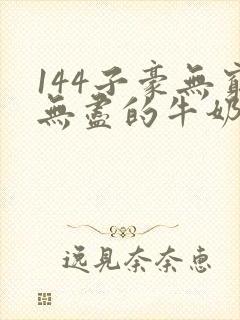 144子豪無窮
無盡的牛奶
逸見奈奈惠